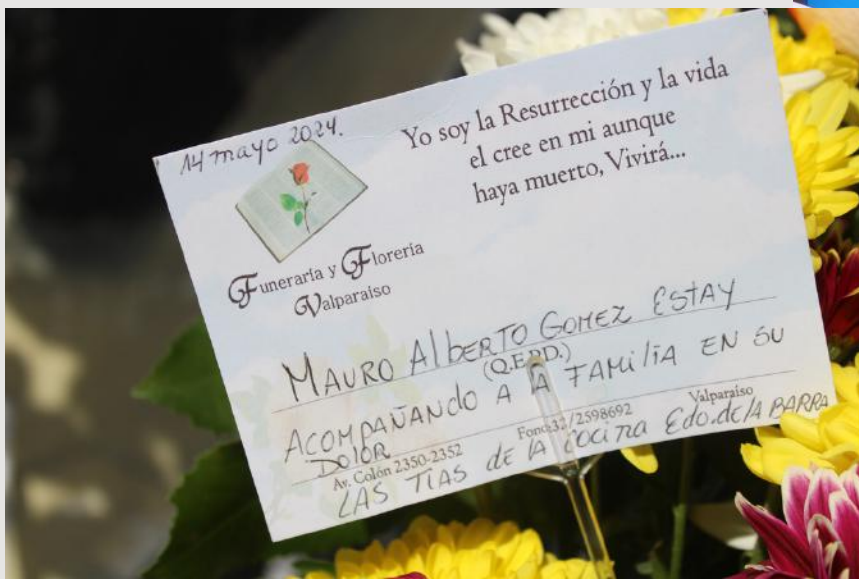 14 mayo 2024.
Yo soy la Resurrección y la vida
el cree en mi aunque
haya muerto, Vivirá...
Funeraria y Florería
Valparaiso
MAURO AlbERTO GOMEZ ESTAY
(Q.E.P.D.)
ACOMPAÑANdO A lA FAMiliA EN SU
DOlOR
Av. Colón 2350-2352 Fono:32/2598692 Valparaíso
LAS TIAS de LA COCINA Edo.de lA BARRA